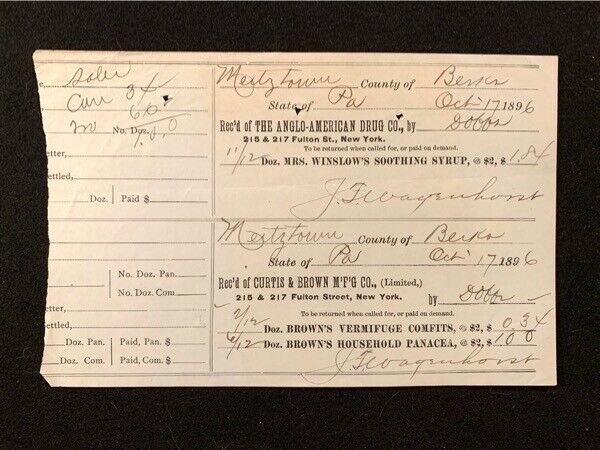 Sales
Curr 34
66
no No. Doz. 1.00
etter,
ettled,
Doz. Paid $
Mertztown County of Berks
State of Pa Oct 17 1896
Rec'd of THE ANGLO-AMERICAN DRUG CO., by Dobbs
215 & 217 Fulton St., New York.
To be returned when called for, or paid on demand.
11/12 Doz. MRS. WINSLOW'S SOOTHING SYRUP, @ $2, $ 1.84
J.F. Wagenhorst
No. Doz. Pan.
No. Doz. Com.
etter,
ettled,
Doz. Pan. Paid, Pan. $
Doz. Com. Paid, Com. $
Mertztown County of Berks
State of Pa Oct 17 1896
Rec'd of CURTIS & BROWN M'F'G CO., (Limited,)
215 & 217 Fulton Street, New York. by Dobbs
To be returned when called for, or paid on demand.
2/12 Doz. BROWN'S VERMIFUGE COMFITS, @ $2, $ 0.34
6/12 Doz. BROWN'S HOUSEHOLD PANACEA, @ $2, $ 1.00
J.F. Wagenhorst